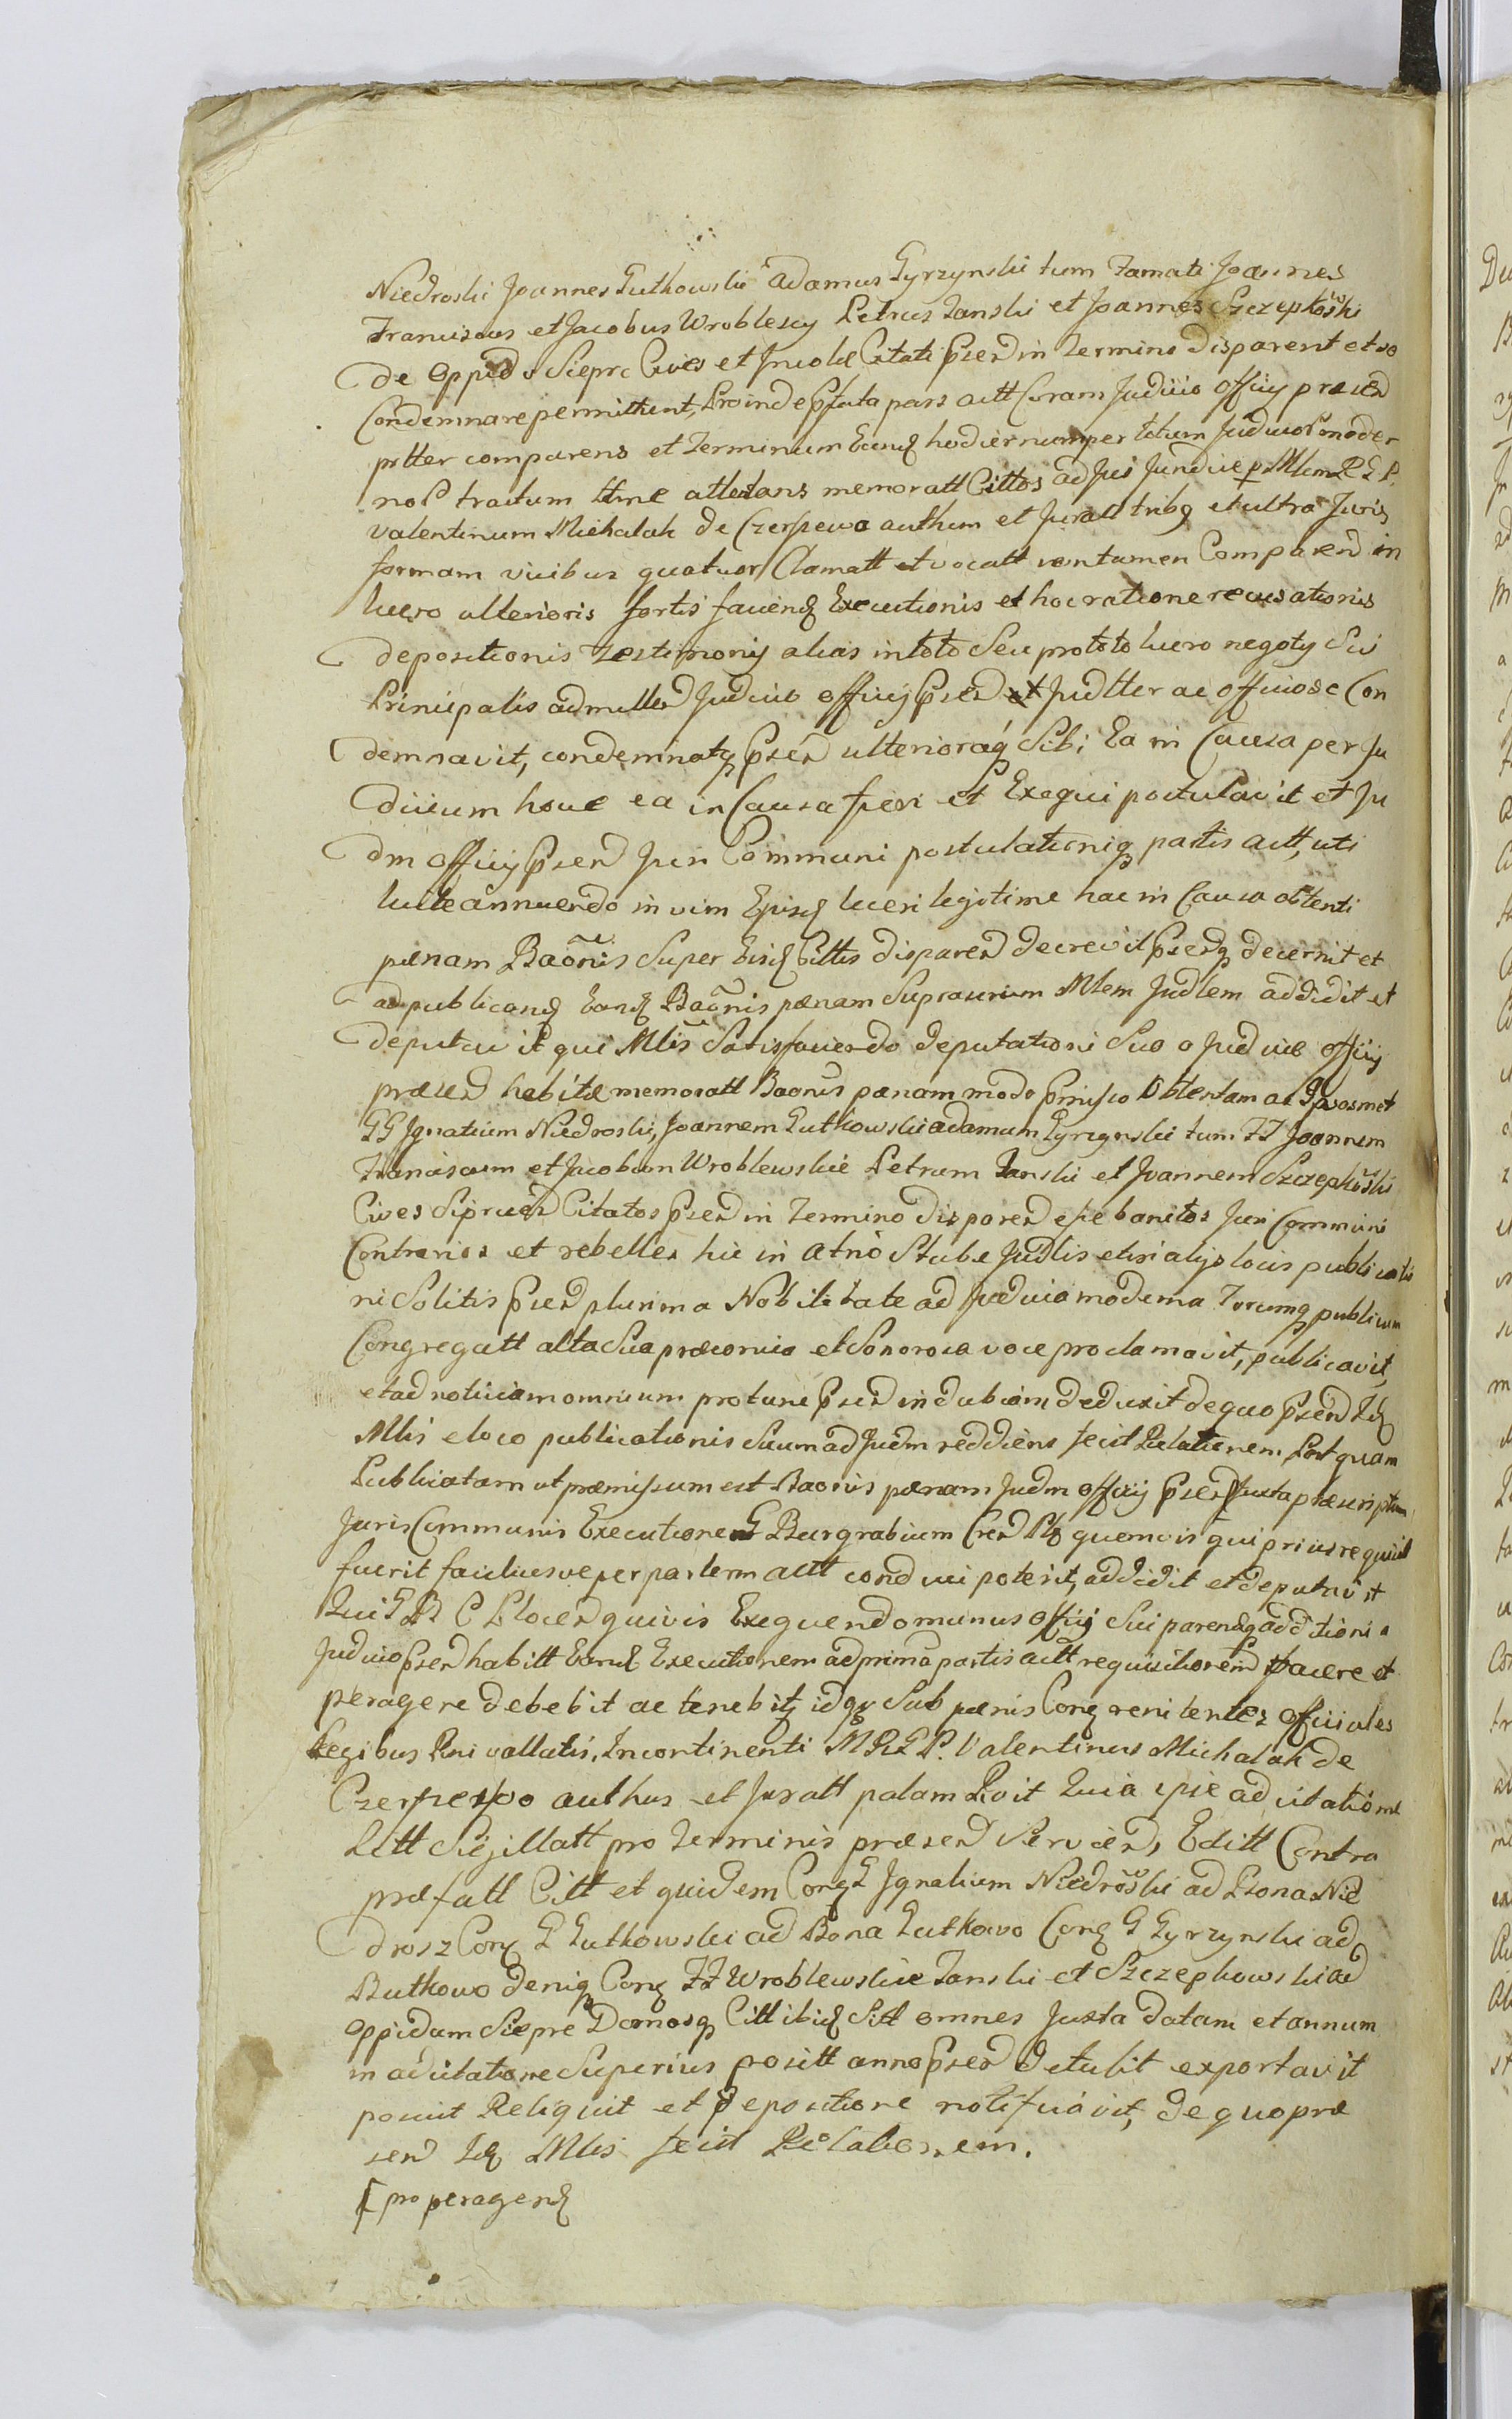 Niedroski Joannes Gutkowski Adamus Gyrzynski tum Famati Joannes
Franciscus et Jacobus Wroblescy Petrus Janski et Joannes Szczepkowski
de oppido Sieprc Cives et Incolæ Citati Psen in Termino disparent et se
Condemnare permittunt, Proinde Psata pars actt Coram Judicio officij præsen
pntter comparens et Terminum Eund hodiernum per totum Judicior moder
nor tractum ttme attestans memoratt Cittos ad Jus Jundice p Mlem R G P.
Valentinum Michalak de Czerpewo authum et Juratt tribq et ultra Juris
formam vicibus quatuor Clamatt et vocatt non tamen Comparen in
lucro ulterioris fortis faciend Executionis et hoc ratione recusationis
depositionis Testimonij alias in toto Seu pro toto lucro negotij Sui
Principalis admitten Judicio officij Psen et Judtter ac officiose Con
demnavit, condemnatq Psen ulterioraq Sibi Ea in Causa per Ju
dicium hocce ea in Causa fieri et Exequi postulavit et Ju
dm officij Psen Juri Communi postulationiq partis actt, uti
luite annuendo in vim Ejusd lucri legitime hac in Causa obtenti
pænam Baonis Super Eisd Cittis disparen decrevit Psenq decernit et
ad publicand Eand Baonis pænam Suprascrium Mlem Judlem addidit et
deputavit qui Mlis Satisfaciendo deputationi Suæ a Judicio officij
præsen habitæ memoratt Baonis pænam modo Pmisso Obtentam ac Ipsosmet
GG Ignatium Niedroski, Joannem Gutkowski adamum Gyrzynski tum FF Joannem
Franciscum et Jacobum Wroblewskie Petrum Janski et Joannem Szczepkowski
Cives Siprcen Citatos Psen in Termino disparen esse banitos Juri Communi
Contrarios et rebelles hic in atrio Stubæ Judlis etiri alijs locis publicatio
ni Solitis Psen plurima Nobilitate ad Judicia moderna Forumq publicum
Congregatt alta Sua præconica et Sonorosa voce proclamavit, publicavit,
et ad noticiam omnium protunc Psen indubiam deduxit de quo Psen Id
Mlis e loco publicationis Suum ad Judm reddiens fecit Relationem. Postquam
Publicatam ut præmissum est Baonis pænam Judm officij Psen Juxta præscriptum
Juris Communis Executione G Burgrabium Cren Plo quemvis qui prius requisit
fuerit faciliusve per partem actt conduci poterit, addidit et deputavit
Qui G B C Plocen quivis Exequendo munus officij Sui parendq additioni a
Judicio Psen habitt Eand Executionem ad primā partis actt requisitionem facere et
peragere debebit ac tenebitq idqz Sub pænis Conq renitentes officiales
Legibus Rni vallatis. Incontinenti M R G P. Valentinus Michalak de
Czerpewo authus et Juratt palam Rvit Quia ipse ad citationne
Litt Sigillatt pro Terminis præsen Servien, Editt Contra
præfatt Citt et quidem Conq G Ignatium Niedroski ad Bona Nie
drosz Conq G Gutkowski ad Bona Gutkowo Conq G Gyrzynski ad
Butkowo deniq Conq FF Wroblewskie Janski et Szczepkowski ad
oppidum Sieprc Domosq Citt ibid Sitt omnes Juxta datam et annum
in adcitatione Superius positt anno Psen detulit exportavit
posuit Reliquit et depositione notificavit, de quo præ
sen Id Mlis fecit Relationem.
[pro peragend